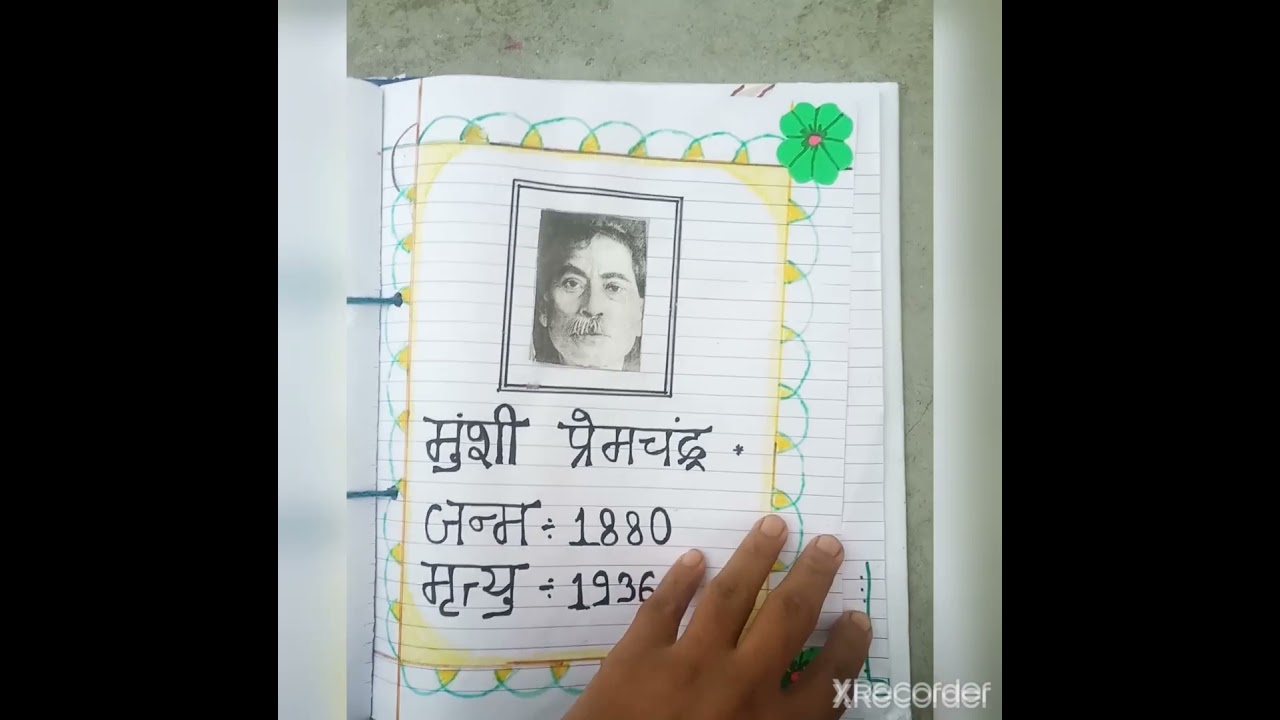 मुंशी प्रेमचंद्र *
जन्म ÷ 1880
मृत्यु ÷ 1936
XRecorder